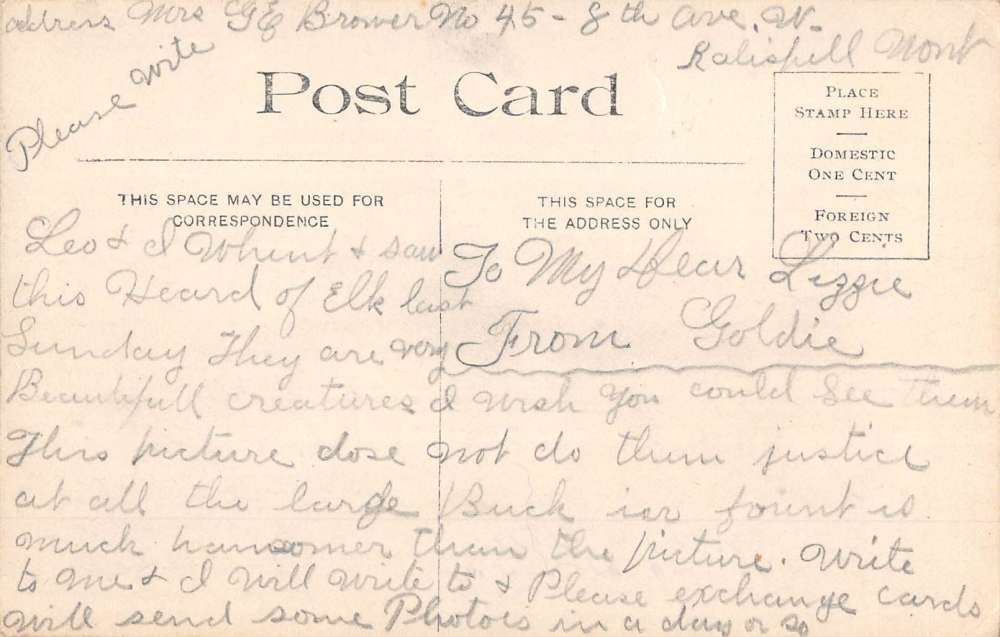 address Mrs GE Brower No 45 - 8th Ave. W-
Kalispell Mont
Please write
Post Card
PLACE
STAMP HERE
DOMESTIC
ONE CENT
FOREIGN
TWO CENTS
THIS SPACE MAY BE USED FOR
CORRESPONDENCE
THIS SPACE FOR
THE ADDRESS ONLY
To My Dear Lizzie
From Goldie
Leo & I Whent & saw
this Heard of Elk last
Sunday They are very
Beautifull creatures I wish you could See them
This picture dose not do them justice
at all the large Buck in fount is
much hansomer than the picture. Write
to me & I will write to & Please exchange cards
will send some Photos in a day or so